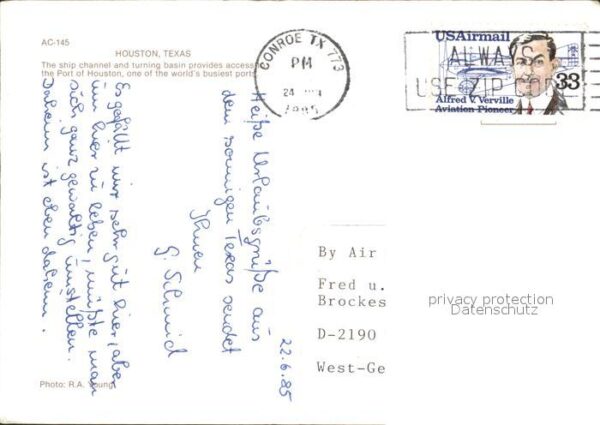 AC-145
HOUSTON, TEXAS
The ship channel and turning basin provides access
the Port of Houston, one of the world's busiest ports
CONROE TX 773
PM
24
1985
USAirmail
ALWAYS
USE ZIP CODE
33
Alfred V. Verville
Aviation Pioneer
Heiße Urlaubsgrüße aus
dem sonnigen Texas sendet
Ihnen
G. Schmid
22.6.85
Es gefällt mir sehr gut hier, aber
um hier zu leben, müßte man
sich ganz gewaltig umstellen.
Daheim ist eben daheim.
By Air
Fred u.
Brockes
D-2190
West-Ge
privacy protection
Datenschutz
Photo: R.A. Young